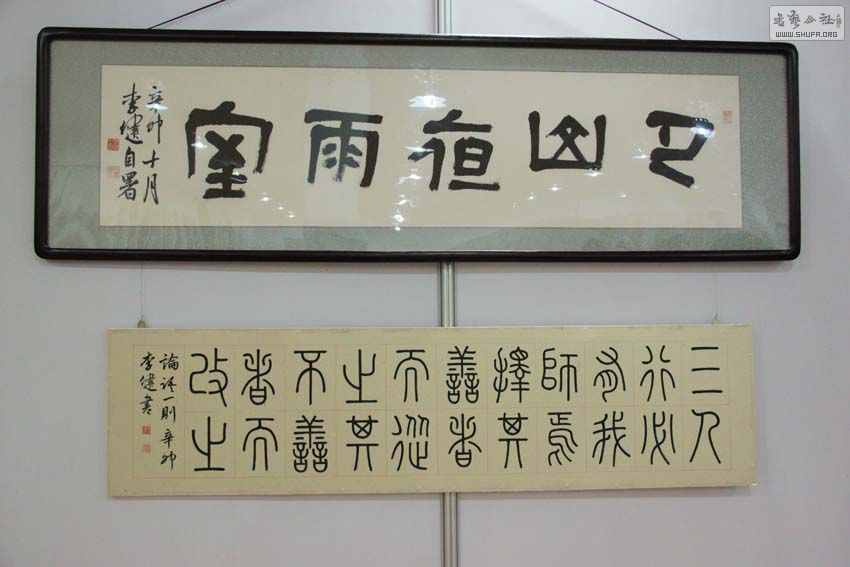 書藝公社
WWW.SHUFA.ORG
巴山夜雨室
辛卯十月
李健自署
三人
行必
有我
師焉
擇其
善者
而從
之其
不善
者而
改之
論語一則 辛卯
李健書